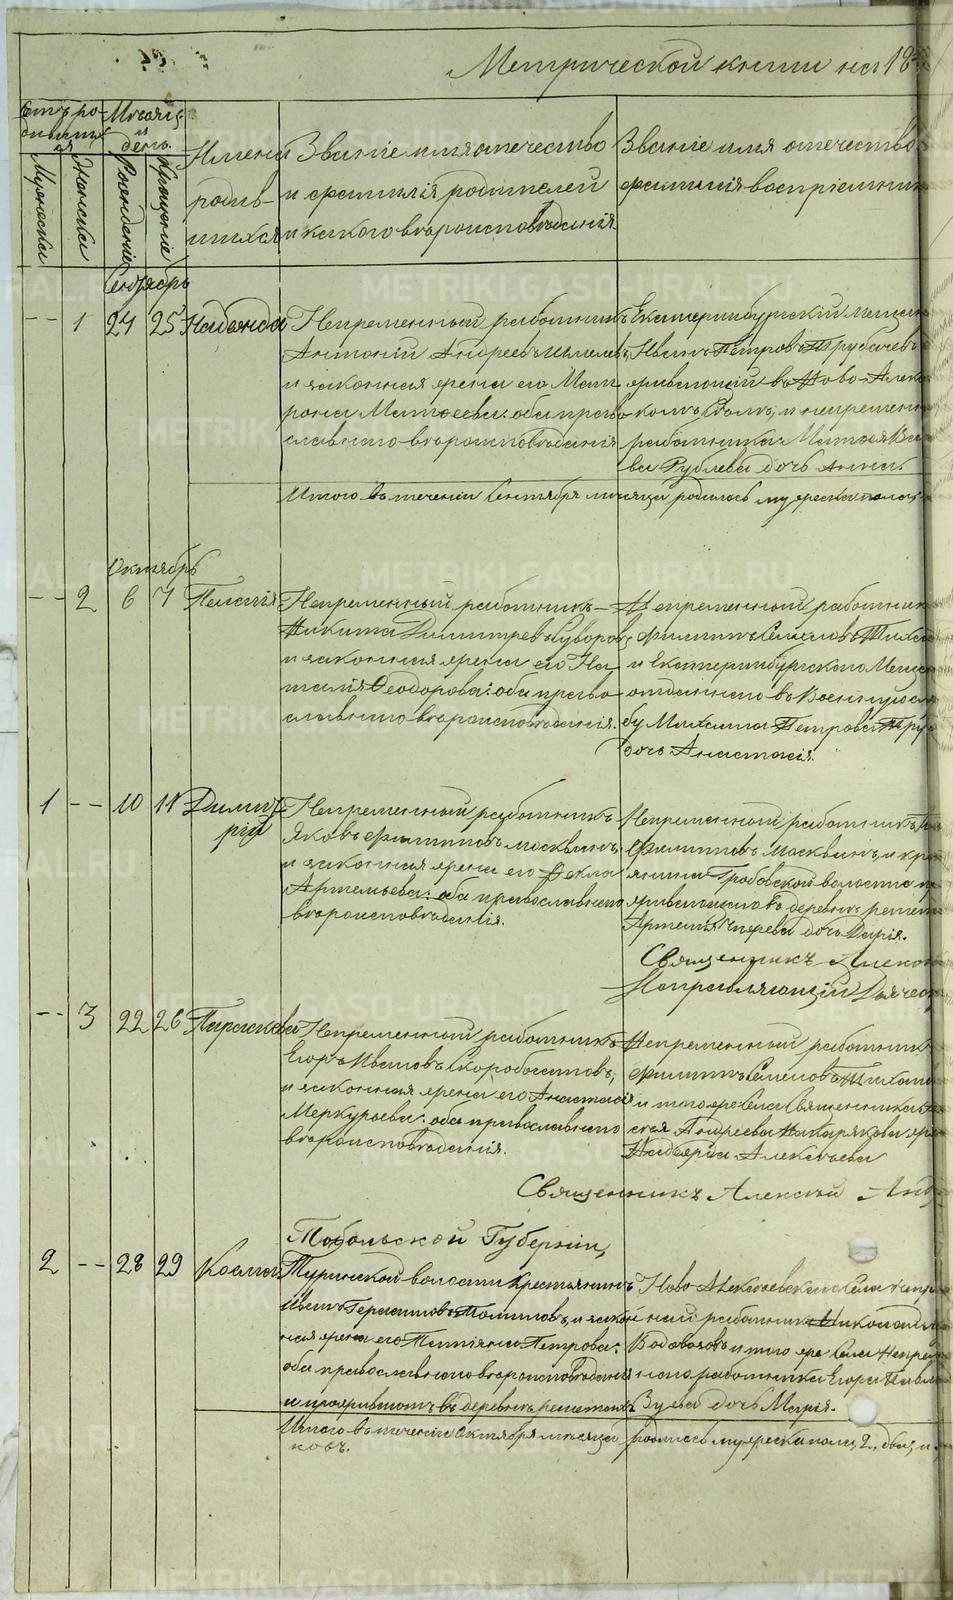 Метрической книги на 18
Счетъ родившихся
Мужеска
Женска
Месяцъ и день.
Рожденіе
Крещеніе
Имена родившихся
Званіе имя отечество
и фамилія родителей
и какого вероисповѣданія.
Званіе имя отечество
фамилія воспріемник
Сентябрь
-- 1 24 25 Надежда
Непременный работникъ
Антоній Андреевъ
и законная жена его Мат
рона Матѳеева: оба право
славнаго вероисповѣданія
Екатеринбургскій мещан
Иванъ Петровъ Трубачевъ
живающій въ Ново-Алекс
и непременн
работника Матѳея
ва Рублева дочь Анна.
Итого въ теченіи Сентября месяца родилось мужеска пола
Октябрь
-- 2 6 7 Пелагія
Непременный работникъ
Никита Димитревъ Суворов
и законная жена его На
талія Ѳеодорова: оба право
славнаго вероисповѣданія.
Непременный работник
Филиппъ Самсоловъ
и Екатеринбургскаго Мещан
отданнаго въ Военную слу
бу Михаила Петрова Тру
дочь Анастасія.
1 -- 10 11 Димит
рій
Непременный работникъ
Яковъ Филиповъ Москвинъ,
и законная жена его Ѳекла
Артемьева: оба православнаго
вероисповѣданія.
Непременный работникъ
Филиповъ Москвинъ, и кре
янина Гробовской волости
живающаго въ деревне решет
Артемія дочь Дарія.
Священникъ Алекс
Исправляющій Дьячес
-- 3 22 26 Параскева
Непременный работникъ
Егоръ Ивановъ Скоробогатовъ,
и законная жена его Анастасія
Меркурьева: оба православнаго
вероисповѣданія.
Непременный работник
Филиппъ
и тогоже Села Священника
Андреева Макарякова же
Надежда Алексѣева
Священникъ Алексѣй Анд
2 -- 28 29 Косма
Тобольской Губерніи,
Туринской волости Крестьянинъ
Иванъ Герасимовъ Томиловъ, и закон
ная жена его Татіяна Петрова:
оба православнаго вероисповѣданія
и проживаютъ въ деревне решетахъ
Ново Алексѣевскаго Села непре
ный работникъ Николай
Водовозовъ и того же Села Непре
наго работника Егора Павл
Зуева дочь Марія.
Итого въ теченіи Октября месяца родилось мужеска пола, 2, два, и
ковъ.
METRIKI.GASO-URAL.RU